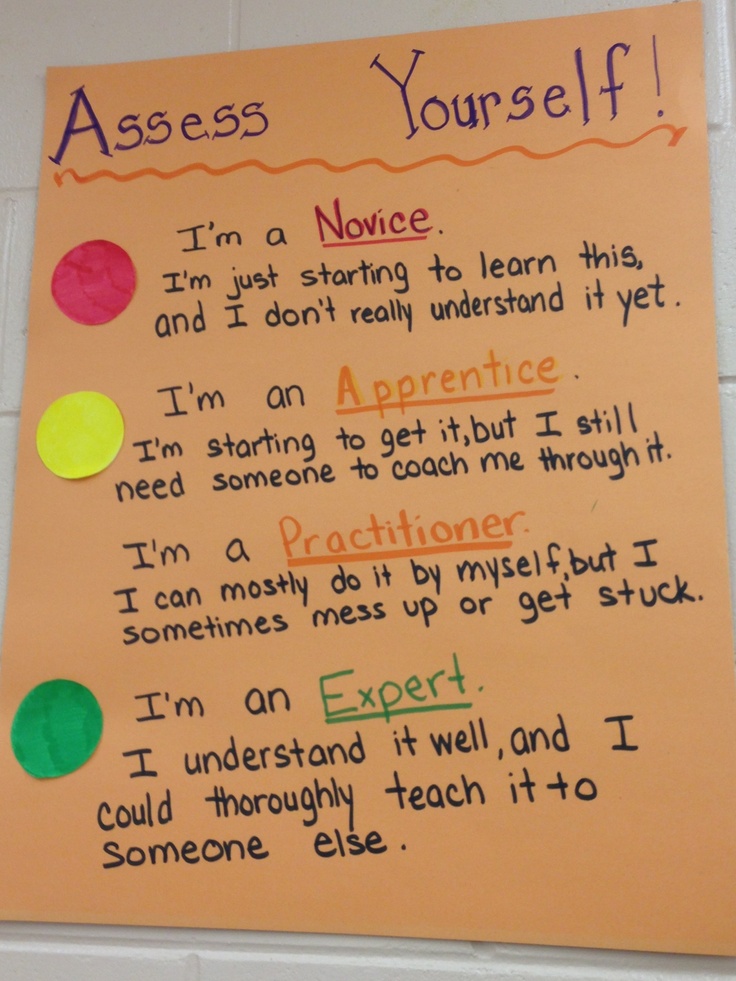 Assess Yourself!
I'm a Novice.
I'm just starting to learn this,
and I don't really understand it yet.
I'm an Apprentice.
I'm starting to get it, but I still
need someone to coach me through it.
I'm a Practitioner.
I can mostly do it by myself, but I
sometimes mess up or get stuck.
I'm an Expert.
I understand it well, and I
could thoroughly teach it to
someone else.